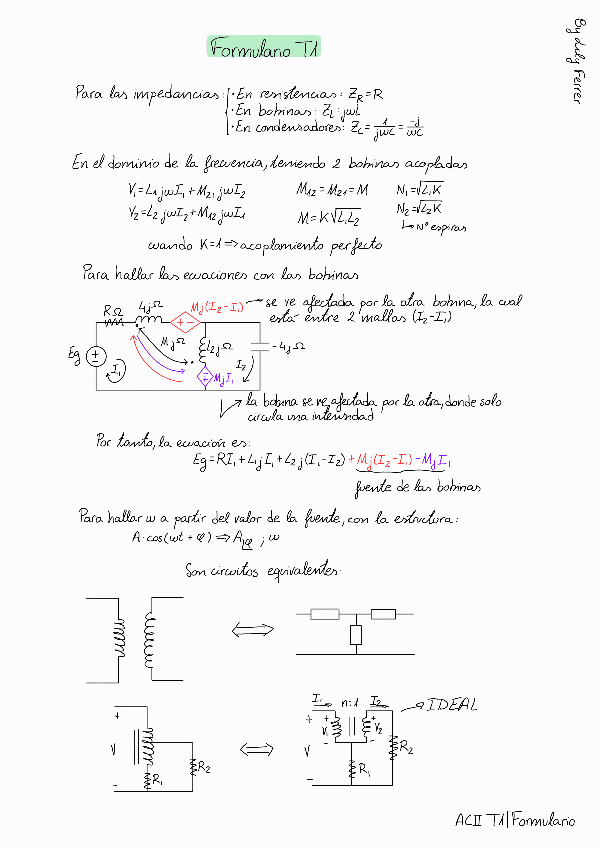 Formulario T1
By Luly Ferrer
Para las impedancias:
· En resistencias: Z_R = R
· En bobinas: Z_L: jωL
· En condensadores: Z_C = 1/jωC = -j/ωC
En el dominio de la frecuencia, teniendo 2 bobinas acopladas
V₁ = L₁ jω I₁ + M₂₁ jω I₂
M₁₂ = M₂₁ = M
N₁ = √L₁K
V₂ = L₂ jω I₂ + M₁₂ jω I₁
M = K√L₁L₂
N₂ = √L₂K
↳ Nº espiras
cuando K=1 ⇒ acoplamiento perfecto
Para hallar las ecuaciones con las bobinas
RΩ
L₁jΩ
Mj(I₂-I₁)
se ve afectada por la otra bobina, la cual
está entre 2 mallas (I₂-I₁)
Eg
I₁
MjΩ
L₂jΩ
I₂
-4jΩ
MjI₁
la bobina se ve afectada por la otra, donde solo
circula una intensidad
Por tanto, la ecuación es:
Eg = RI₁ + L₁jI₁ + L₂j(I₁-I₂) + Mj(I₂-I₁) - MjI₁
fuente de las bobinas
Para hallar ω a partir del valor de la fuente, con la estructura:
A·cos(ωt + φ) ⇒ A|φ ; ω
Son circuitos equivalentes:
+
V
-
R₁
R₂
I₁
n:1
I₂
IDEAL
+
V
-
+
V₁
-
+
V₂
-
R₁
R₂
ACII T1 | Formulario